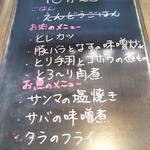 ごはん
えんどうごはん
お肉のメニュー
・ヒレカツ
・豚バラとなすの味噌炒め
・とり手羽とゴボウの煮もの
・とろ〜り角煮
お魚のメニュー
・サンマの塩焼き
・サバの味噌煮
・タラのフライ